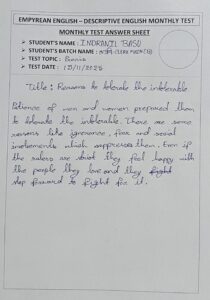 EMPYREAN ENGLISH – DESCRIPTIVE ENGLISH MONTHLY TEST
MONTHLY TEST ANSWER SHEET
➢ STUDENT'S NAME : INDRANIL BASU
➢ STUDENT'S BATCH NAME :
➢ TEST TOPIC :
➢ TEST DATE :
Title : Reasons to tolerate the intolerable
Patience of men and women prepared them
to tolerate the intolerable. There are some
reasons like ignorance, fear and social
involvements which suppresses them. Even if
the rulers are they feel happy with
the people they love and they fight
step forward to fight for it.